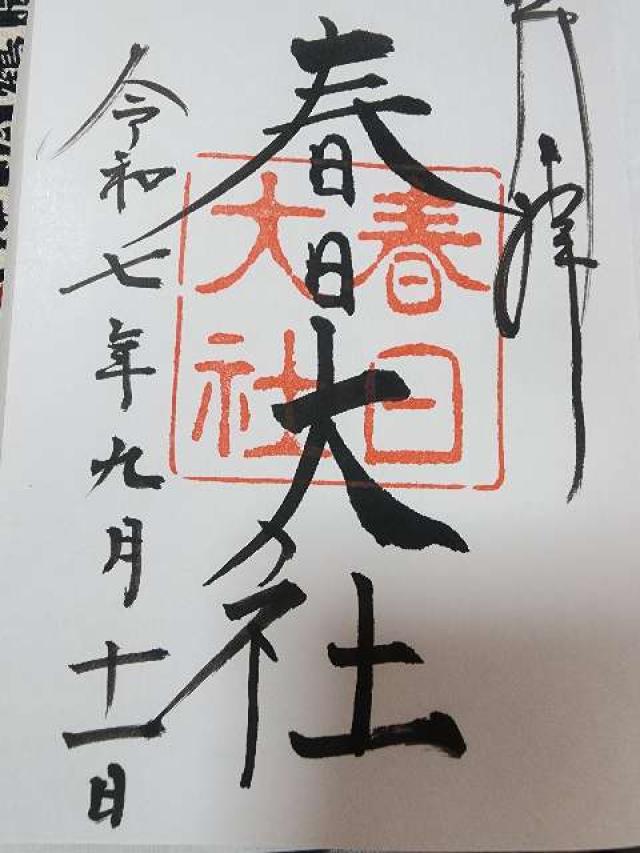 奉拝
春日大社
春日
大社
令和七年九月十一日